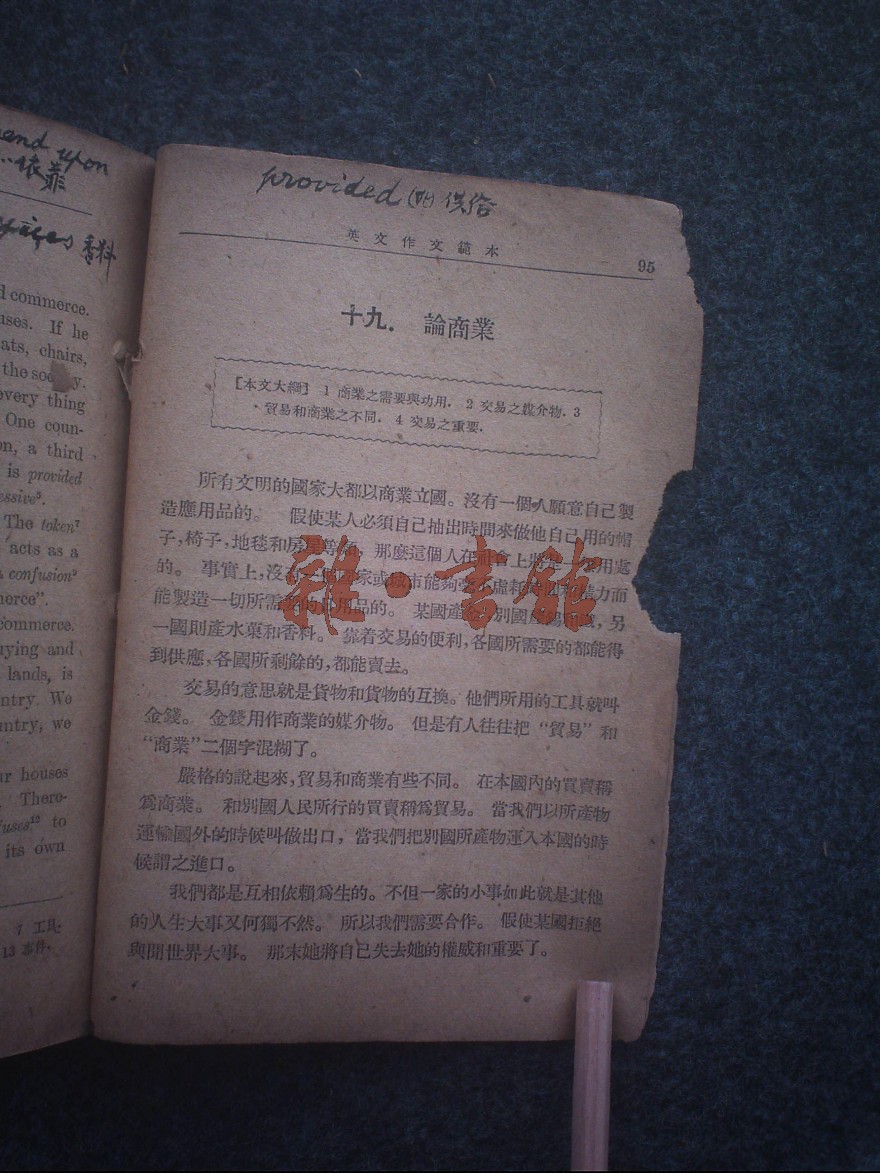 end upon
依靠
spices 香料
d commerce.
uses. If he
ats, chairs,
the society.
every thing
One coun-
on, a third
is provided
essive⁵.
The token⁷
acts as a
confusion⁹
merce".
commerce.
uying and
lands, is
ntry. We
untry, we
ur houses
There-
fuses¹² to
its own
7 工具;
13 事件,
provided 供给
英文作文範本
95
十九. 論商業
【本文大綱】 1 商業之需要與功用. 2 交易之媒介物. 3
貿易和商業之不同. 4 交易之重要.
所有文明的國家大都以商業立國。沒有一個人願意自己製
造應用品的。 假使某人必須自己抽出時間來做他自己用的帽
子,椅子,地毯和房屋等類,那麼這個人在社會上將是 用處
的。 事實上,沒有一個國家或城市能夠 虛耗時間和精力而
能製造一切所需要的日用品的。 某國產 別國 ,另
一國則產水菓和香料。 靠着交易的便利,各國所需要的都能得
到供應,各國所剩餘的,都能賣去。
交易的意思就是貨物和貨物的互換。他們所用的工具就叫
金錢。 金錢用作商業的媒介物。 但是有人往往把 “貿易” 和
“商業”二個字混糊了。
嚴格的說起來,貿易和商業有些不同。 在本國內的買賣稱
爲商業。 和別國人民所行的買賣稱爲貿易。 當我們以所產物
運輸國外的時候叫做出口, 當我們把別國所產物運入本國的時
候謂之進口。
我們都是互相依賴爲生的。不但一家的小事如此就是其他
的人生大事又何獨不然。 所以我們需要合作。 假使某國拒絕
與聞世界大事。 那末她將自己失去她的權威和重要了。
雜·書館